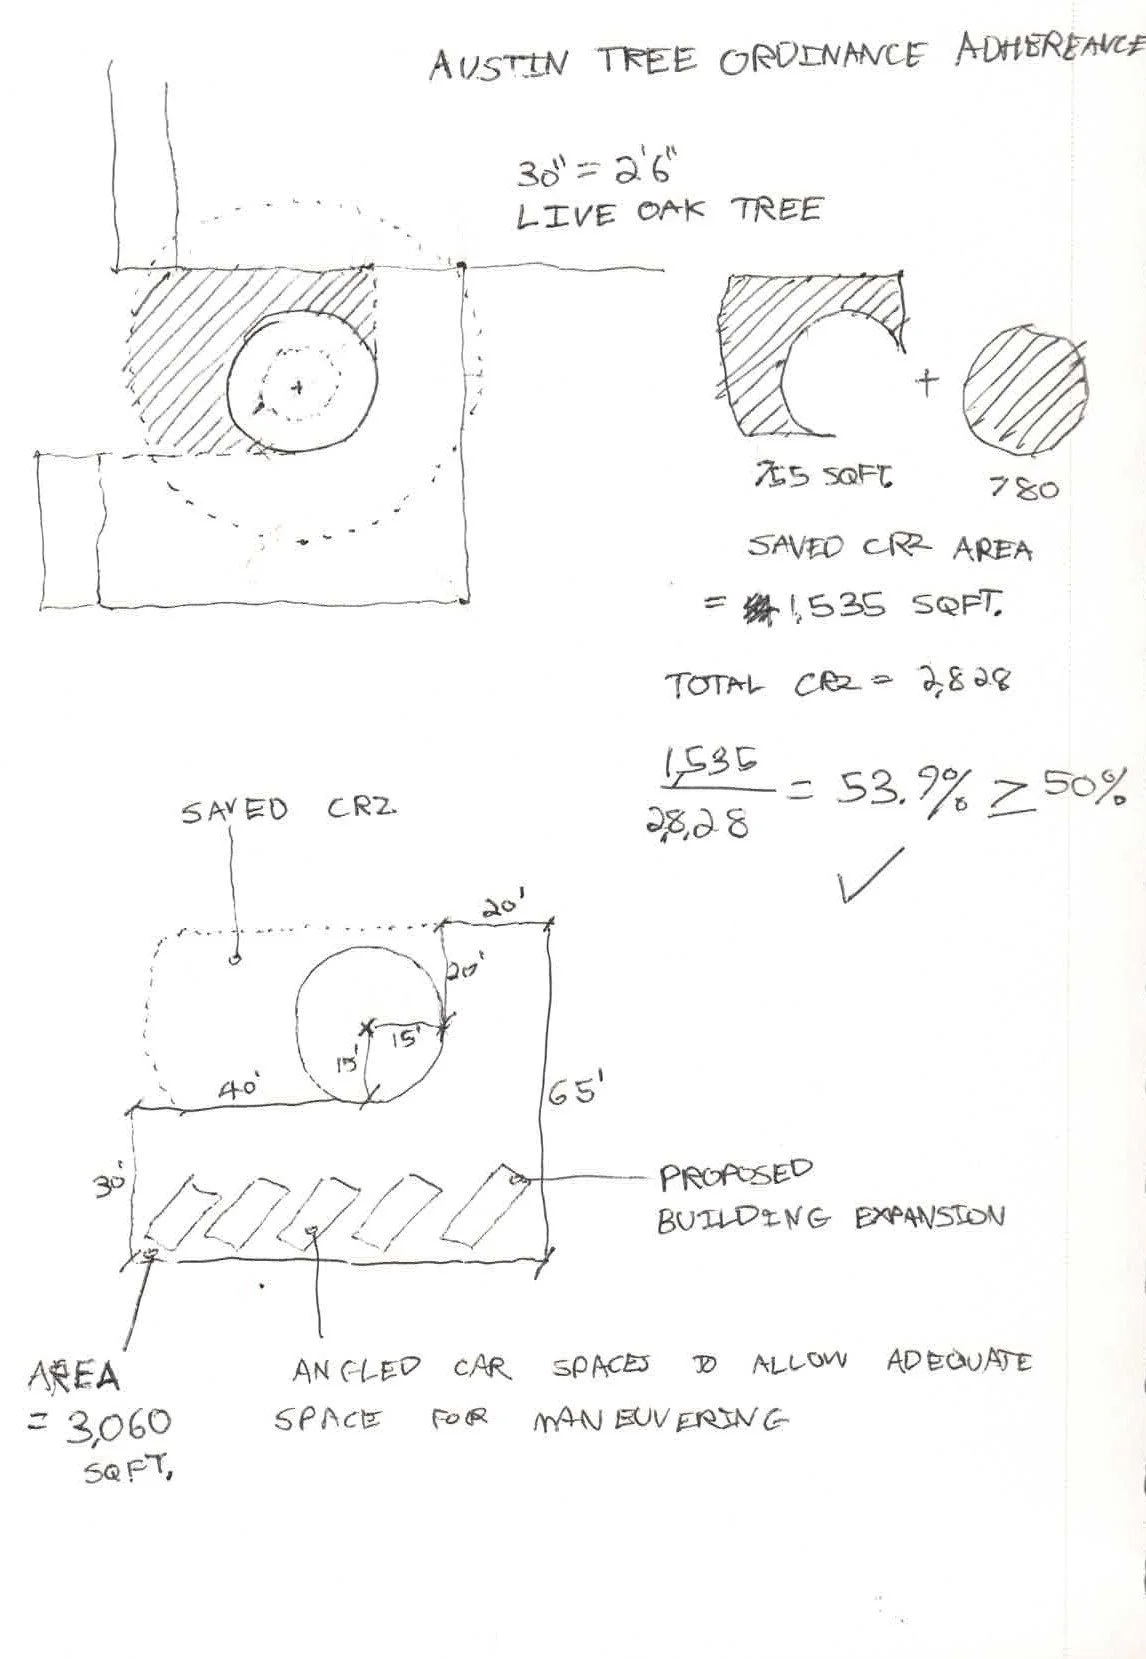 AUSTIN TREE ORDINANCE ADHEREANCE
30" = 2'6"
LIVE OAK TREE
+
755 SQFT.
780
SAVED CRZ AREA
= 1,535 SQFT.
TOTAL CRZ = 2,828
1,535
28,28
= 53.9% ≥ 50%
SAVED CRZ
20'
20'
15'
15'
40'
65'
30'
PROPOSED
BUILDING EXPANSION
AREA
= 3,060
SQFT.
ANGLED CAR SPACES TO ALLOW ADEQUATE
SPACE FOR MANEUVERING